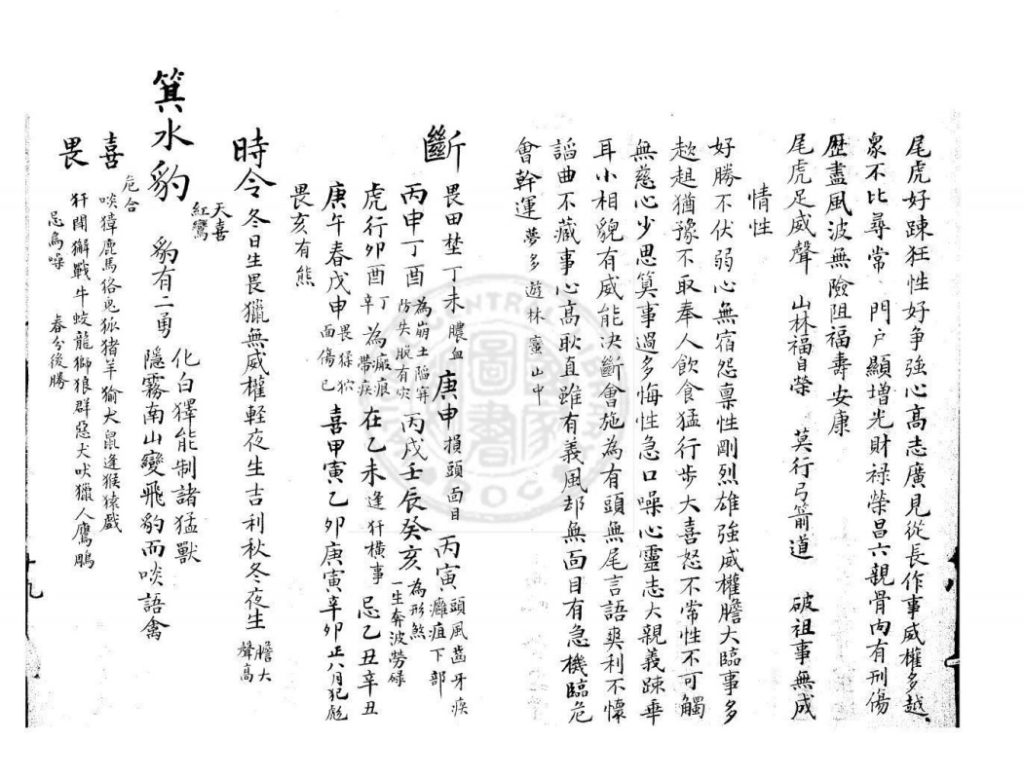 尾虎好踈狂性好争強心高志廣見從長作事威權多越
衆不比尋常 門户顯增光財禄榮昌六親骨肉有刑傷
歷盡風波無險阻福壽安康
尾虎足威聲 山林福自榮 莫行弓箭道 破祖事無成
情性
好勝不伏弱心無宿怨禀性剛烈雄強威權膽大臨事多
趑趄猶豫不取奉人飲食猛行步大喜怒不常性不可觸
無慈心少思算事過多悔性急口噪心靈志大親義踈華
耳小相貌有威能决斷會施為有頭無尾言語爽利不懷
謟曲不藏事心高耿直雖有義風却無面目有急機臨危
會幹運 夢多遊林蜜山中
斷 畏田埜丁未膿血 庚申損頭面目 丙寅頭風齒牙疾癰疽下部
丙申丁酉為崩土陷穽防失脫有灾 丙戌壬辰癸亥為形煞一生奔波勞碌
虎行卯酉丁辛為瘢痕帶疾 在乙未逢犴横事 忌乙丑辛丑
庚午春戊申畏猱狖面傷已 喜甲寅乙卯庚寅辛卯正八月犯彪
畏亥有熊
時令 冬日生畏獵無威權軽夜生吉利秋冬夜生膽大聲高
箕水豹 天喜紅鸞 豹有二勇 化白獐能制諸猛獸
隱霧南山變飛豹而啖語禽
喜 危合 啖獐鹿馬狢兎狐猪羊㺄犬鼠逢猴猿戲
畏 犴閗獬戰牛蛟龍獅狼群惡犬吠獵人鷹鵰
忌烏噪 春分後勝
十九